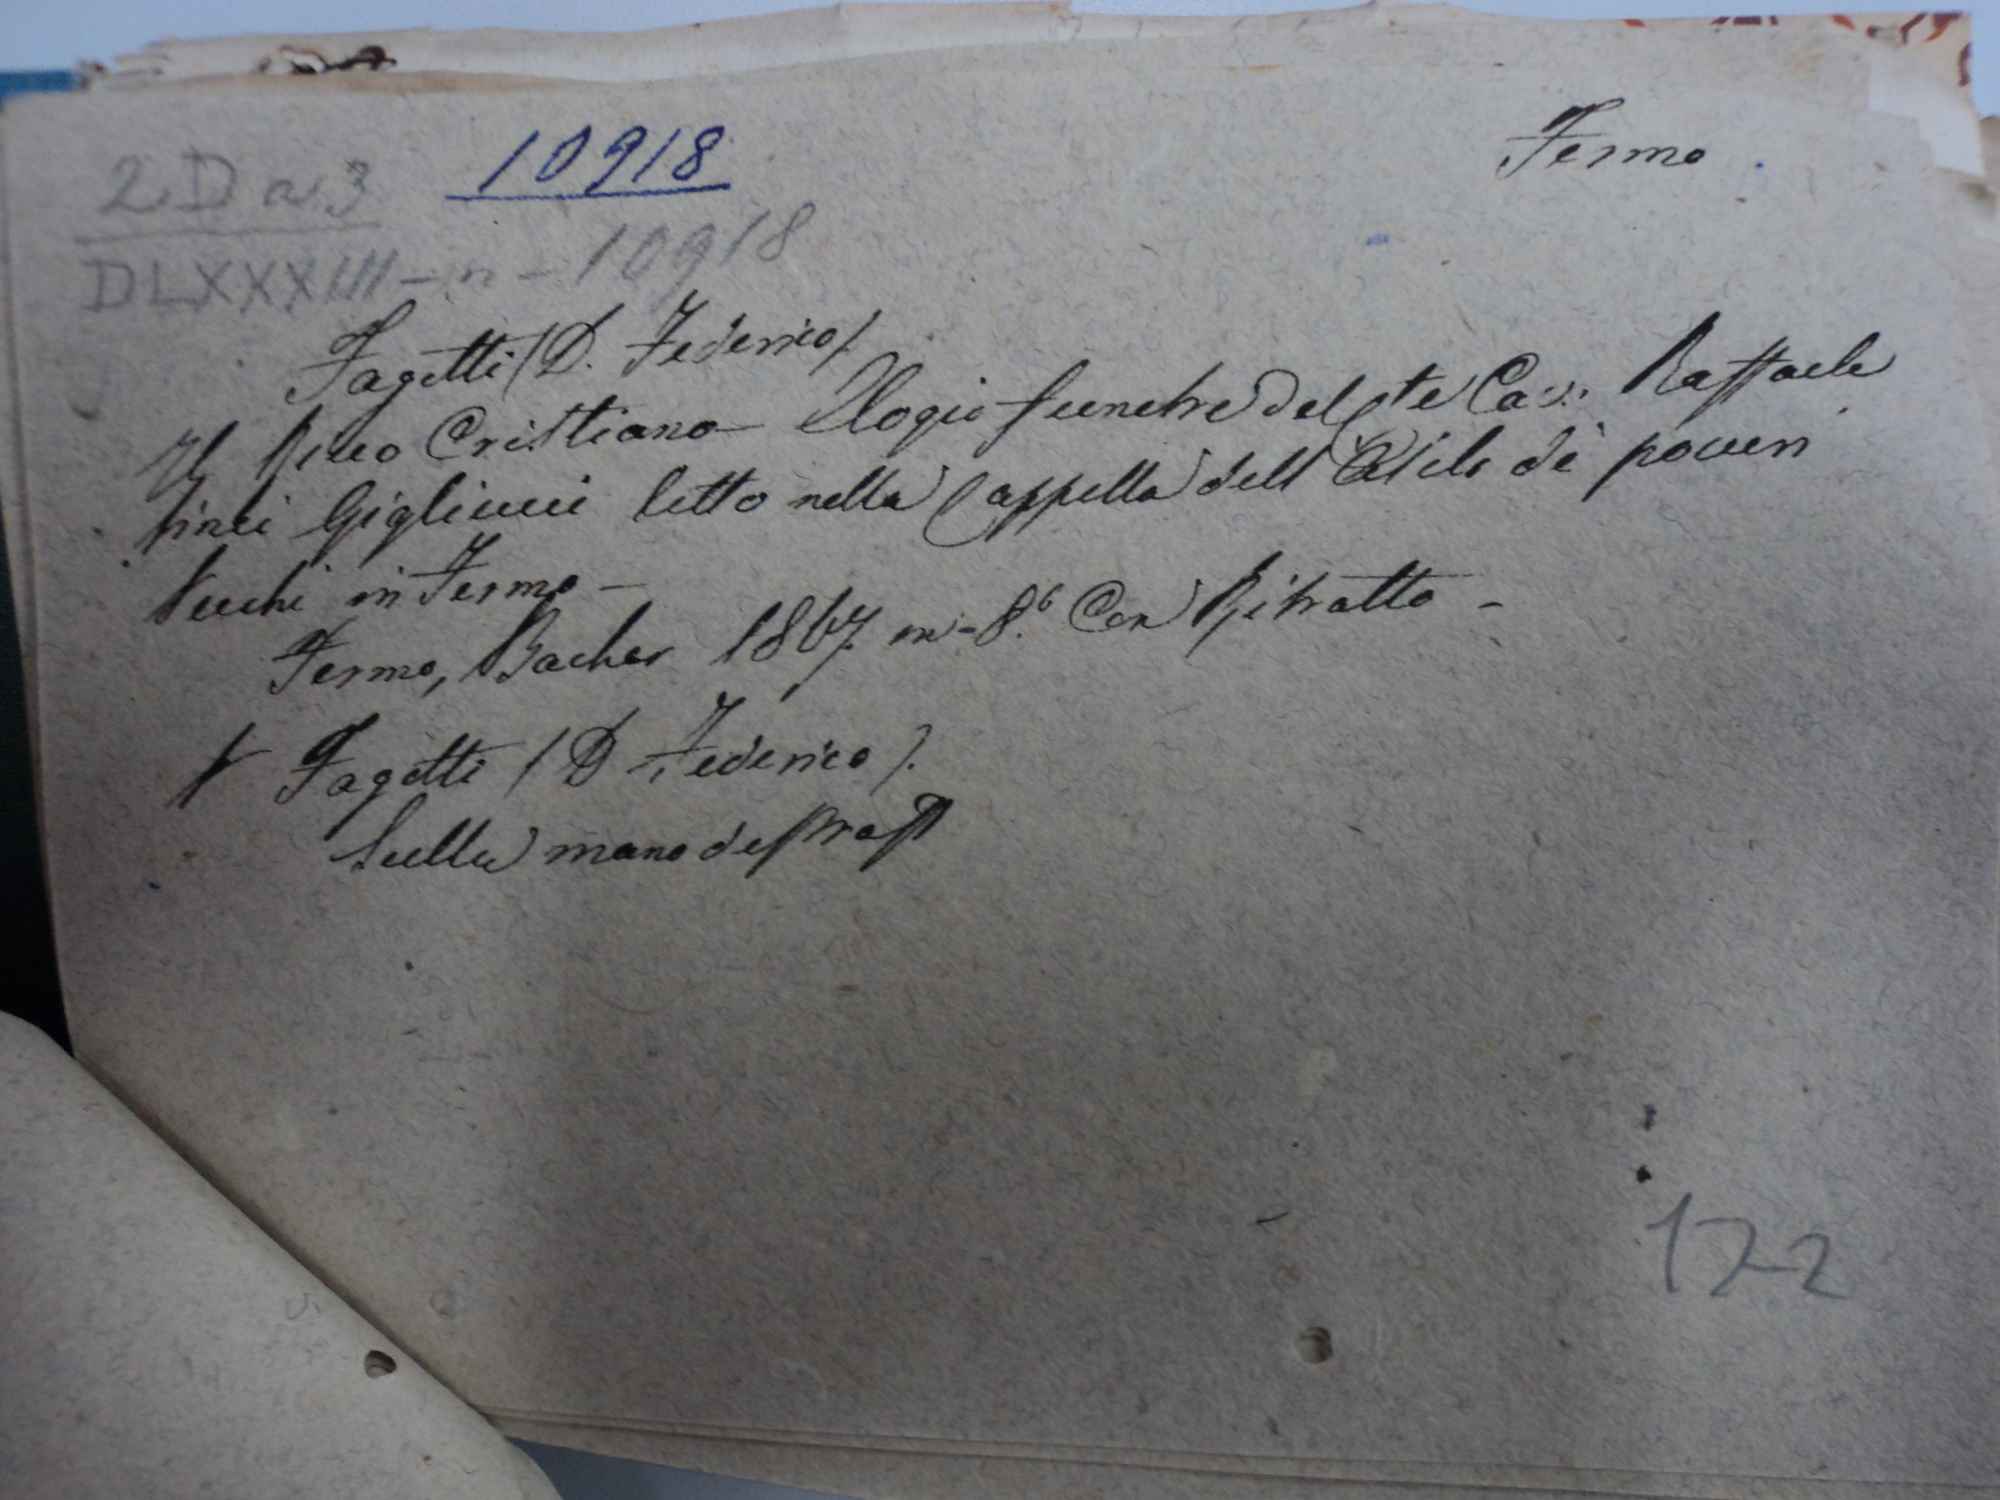 Fermo
10918
2 D a 3
DLXXXIII - n - 10918
Fagotti (D. Federico).
Il Ricco Cristiano - Elogio funebre del Cte Cav. Raffaele
Vinci Gigliucci letto nella Cappella dell'Asilo dè poveri
Vecchi in Fermo -
Fermo, Bacher 1867. in-8.° Con Ritratto -
Fagotti (D Federico).
Sulla mano destra
122